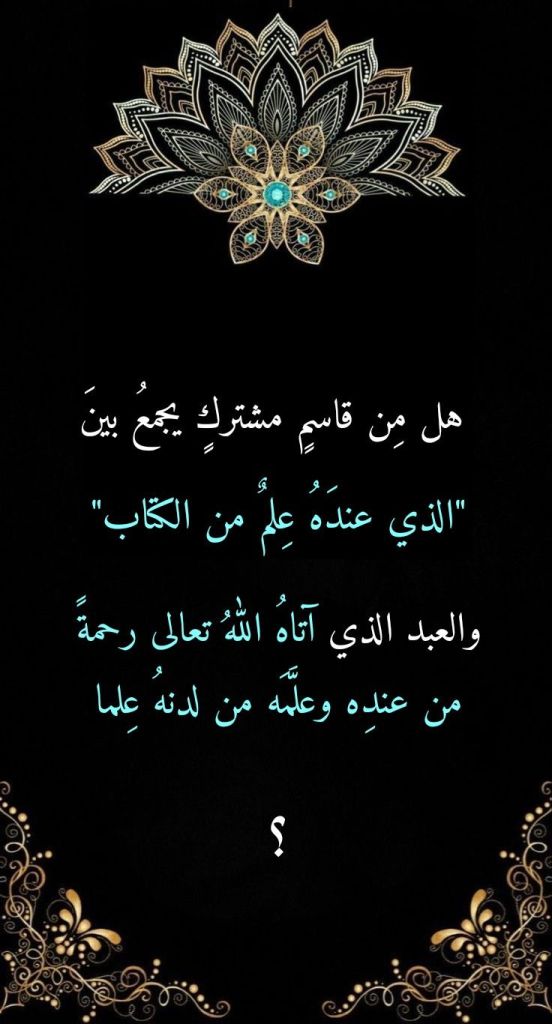 هل مِن قاسمٍ مشتركٍ يجمعُ بينَ
"الذي عندَهُ عِلمٌ من الكتاب"
والعبد الذي آتاهُ اللهُ تعالى رحمةً
من عندِه وعلَّمَه من لدنهُ عِلما
؟